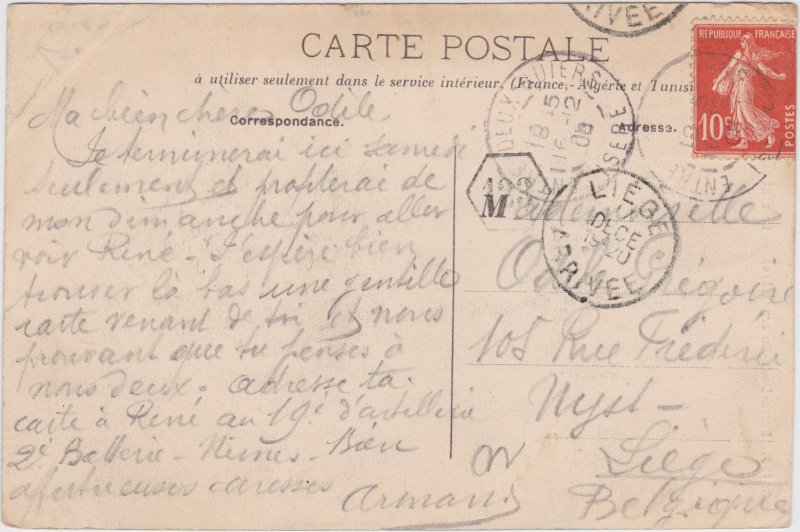 ARRIVÉE
CARTE POSTALE
à utiliser seulement dans le service intérieur, (France, Algérie et Tunisi
Correspondance.
Adresse.
REPUBLIQUE FRANÇAISE
10c
POSTES
18 15
16 -12
08
ISERE
ENTRE
M
LIÉGE
DECE
ARRIVÉE
Ma bien chere Odile
Je terminerai ici samedi
seulement et profiterai de
mon dimanche pour aller
voir René - J'espère bien
trouver là bas une gentille
carte venant de toi et nous
prouvant que tu penses à
nous deux. adresse ta
carte à René au 19e d'artillerie
2e Batterie - Nimes - Bien
affectueuses caresses
Armand
Mademoiselle
Odile Grégoire
105 Rue Fréderic
Nyst -
Liége
Belgique